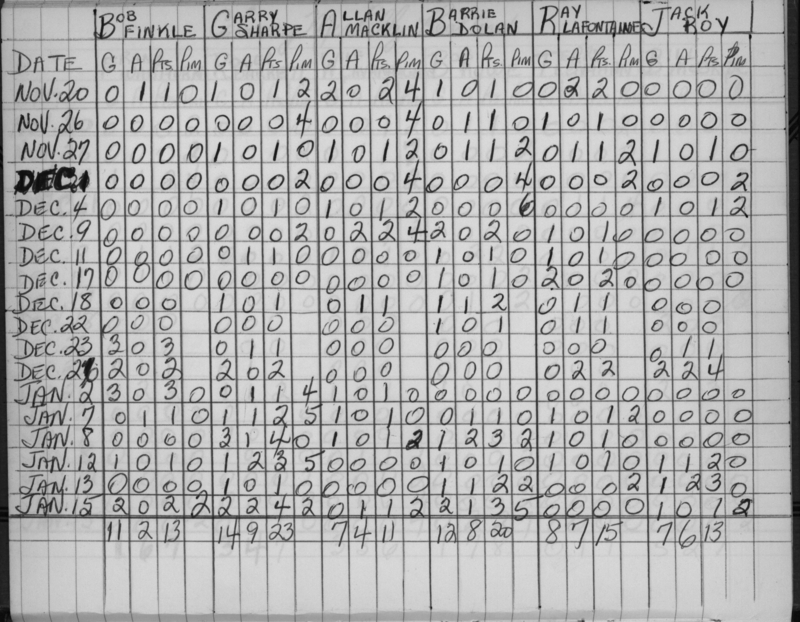 BOB FINKLE GARRY SHARPE ALLAN MACKLIN BARRIE DOLAN RAY LAFONTAINE JACK ROY
DATE G A Pts Pim G A Pts. Pim G A Pts. Pim G A Pts. Pim G A Pts Pim G A Pts Pim
NOV.20 0 1 1 0 1 0 1 2 2 0 2 4 1 0 1 0 0 2 2 0 0 0 0 0
NOV.26 0 0 0 0 0 0 0 4 0 0 0 4 0 1 1 0 1 0 1 0 0 0 0 0
NOV.27 0 0 0 0 1 0 1 0 1 0 1 2 0 1 1 2 0 1 1 2 1 0 1 0
DEC.1 0 0 0 0 0 0 0 2 0 0 0 4 0 0 0 4 0 0 0 2 0 0 0 2
DEC.4 0 0 0 0 1 0 1 0 1 0 1 2 0 0 0 6 0 0 0 0 1 0 1 2
DEC.9 0 0 0 0 0 0 0 2 0 2 2 4 2 0 2 0 1 0 1 0 0 0 0 0
DEC.11 0 0 0 0 0 1 1 0 0 0 0 0 1 0 1 0 1 0 1 0 0 0 0 0
DEC.17 0 0 0 0 0 0 0 0 0 0 0 0 1 0 1 0 2 0 2 0 0 0 0 0
DEC.18 0 0 0 1 0 1 0 1 1 1 1 2 0 1 1 0 0 0
DEC.22 0 0 0 0 0 0 0 0 0 1 0 1 0 1 1 0 0 0
DEC.23 3 0 3 0 1 1 0 0 0 0 0 0 0 0 0 0 1 1
DEC.26 2 0 2 2 0 2 0 0 0 0 0 0 0 2 2 2 2 4
JAN.2 3 0 3 0 0 1 1 4 1 0 1 0 0 0 0 0 0 0 0 0 0 0 0 0
JAN.7 0 1 1 0 1 1 2 5 1 0 1 0 0 1 1 0 1 0 1 2 0 0 0 0
JAN.8 0 0 0 0 3 1 4 0 1 0 1 2 1 2 3 2 1 0 1 0 0 0 0 0
JAN.12 1 0 1 0 1 2 3 5 0 0 0 0 1 0 1 0 1 0 1 0 1 1 2 0
JAN.13 0 0 0 0 1 0 1 0 0 0 0 0 1 1 2 2 0 0 0 2 1 2 3 0
JAN.15 2 0 2 2 2 2 4 2 0 1 1 2 2 1 3 5 0 0 0 0 1 0 1 2
11 2 13 14 9 23 7 4 11 12 8 20 8 7 15 7 6 13